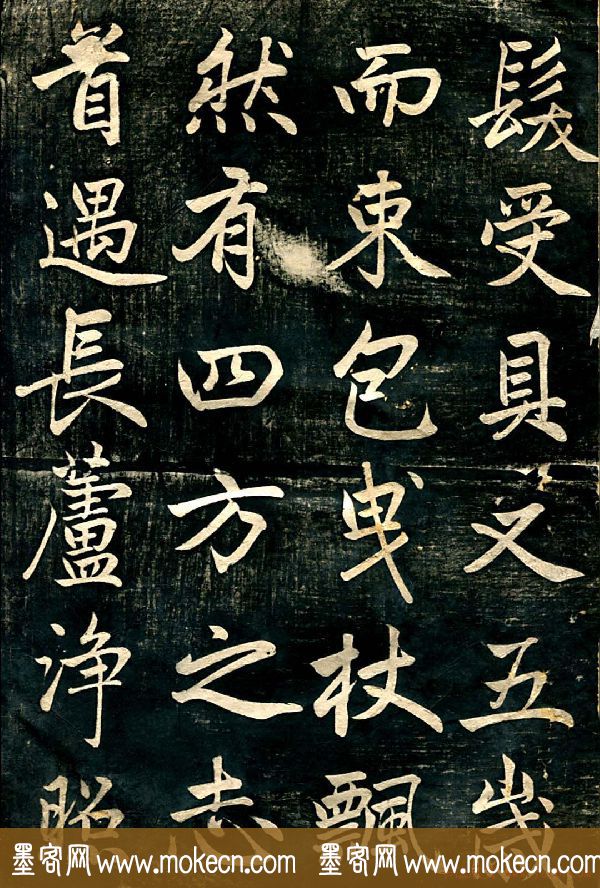 髮受具又五歲
而束包曳杖飄
然有四方之志
首遇長蘆淨照
墨客网 www.mokecn.com 墨客网 www.mokecn.com